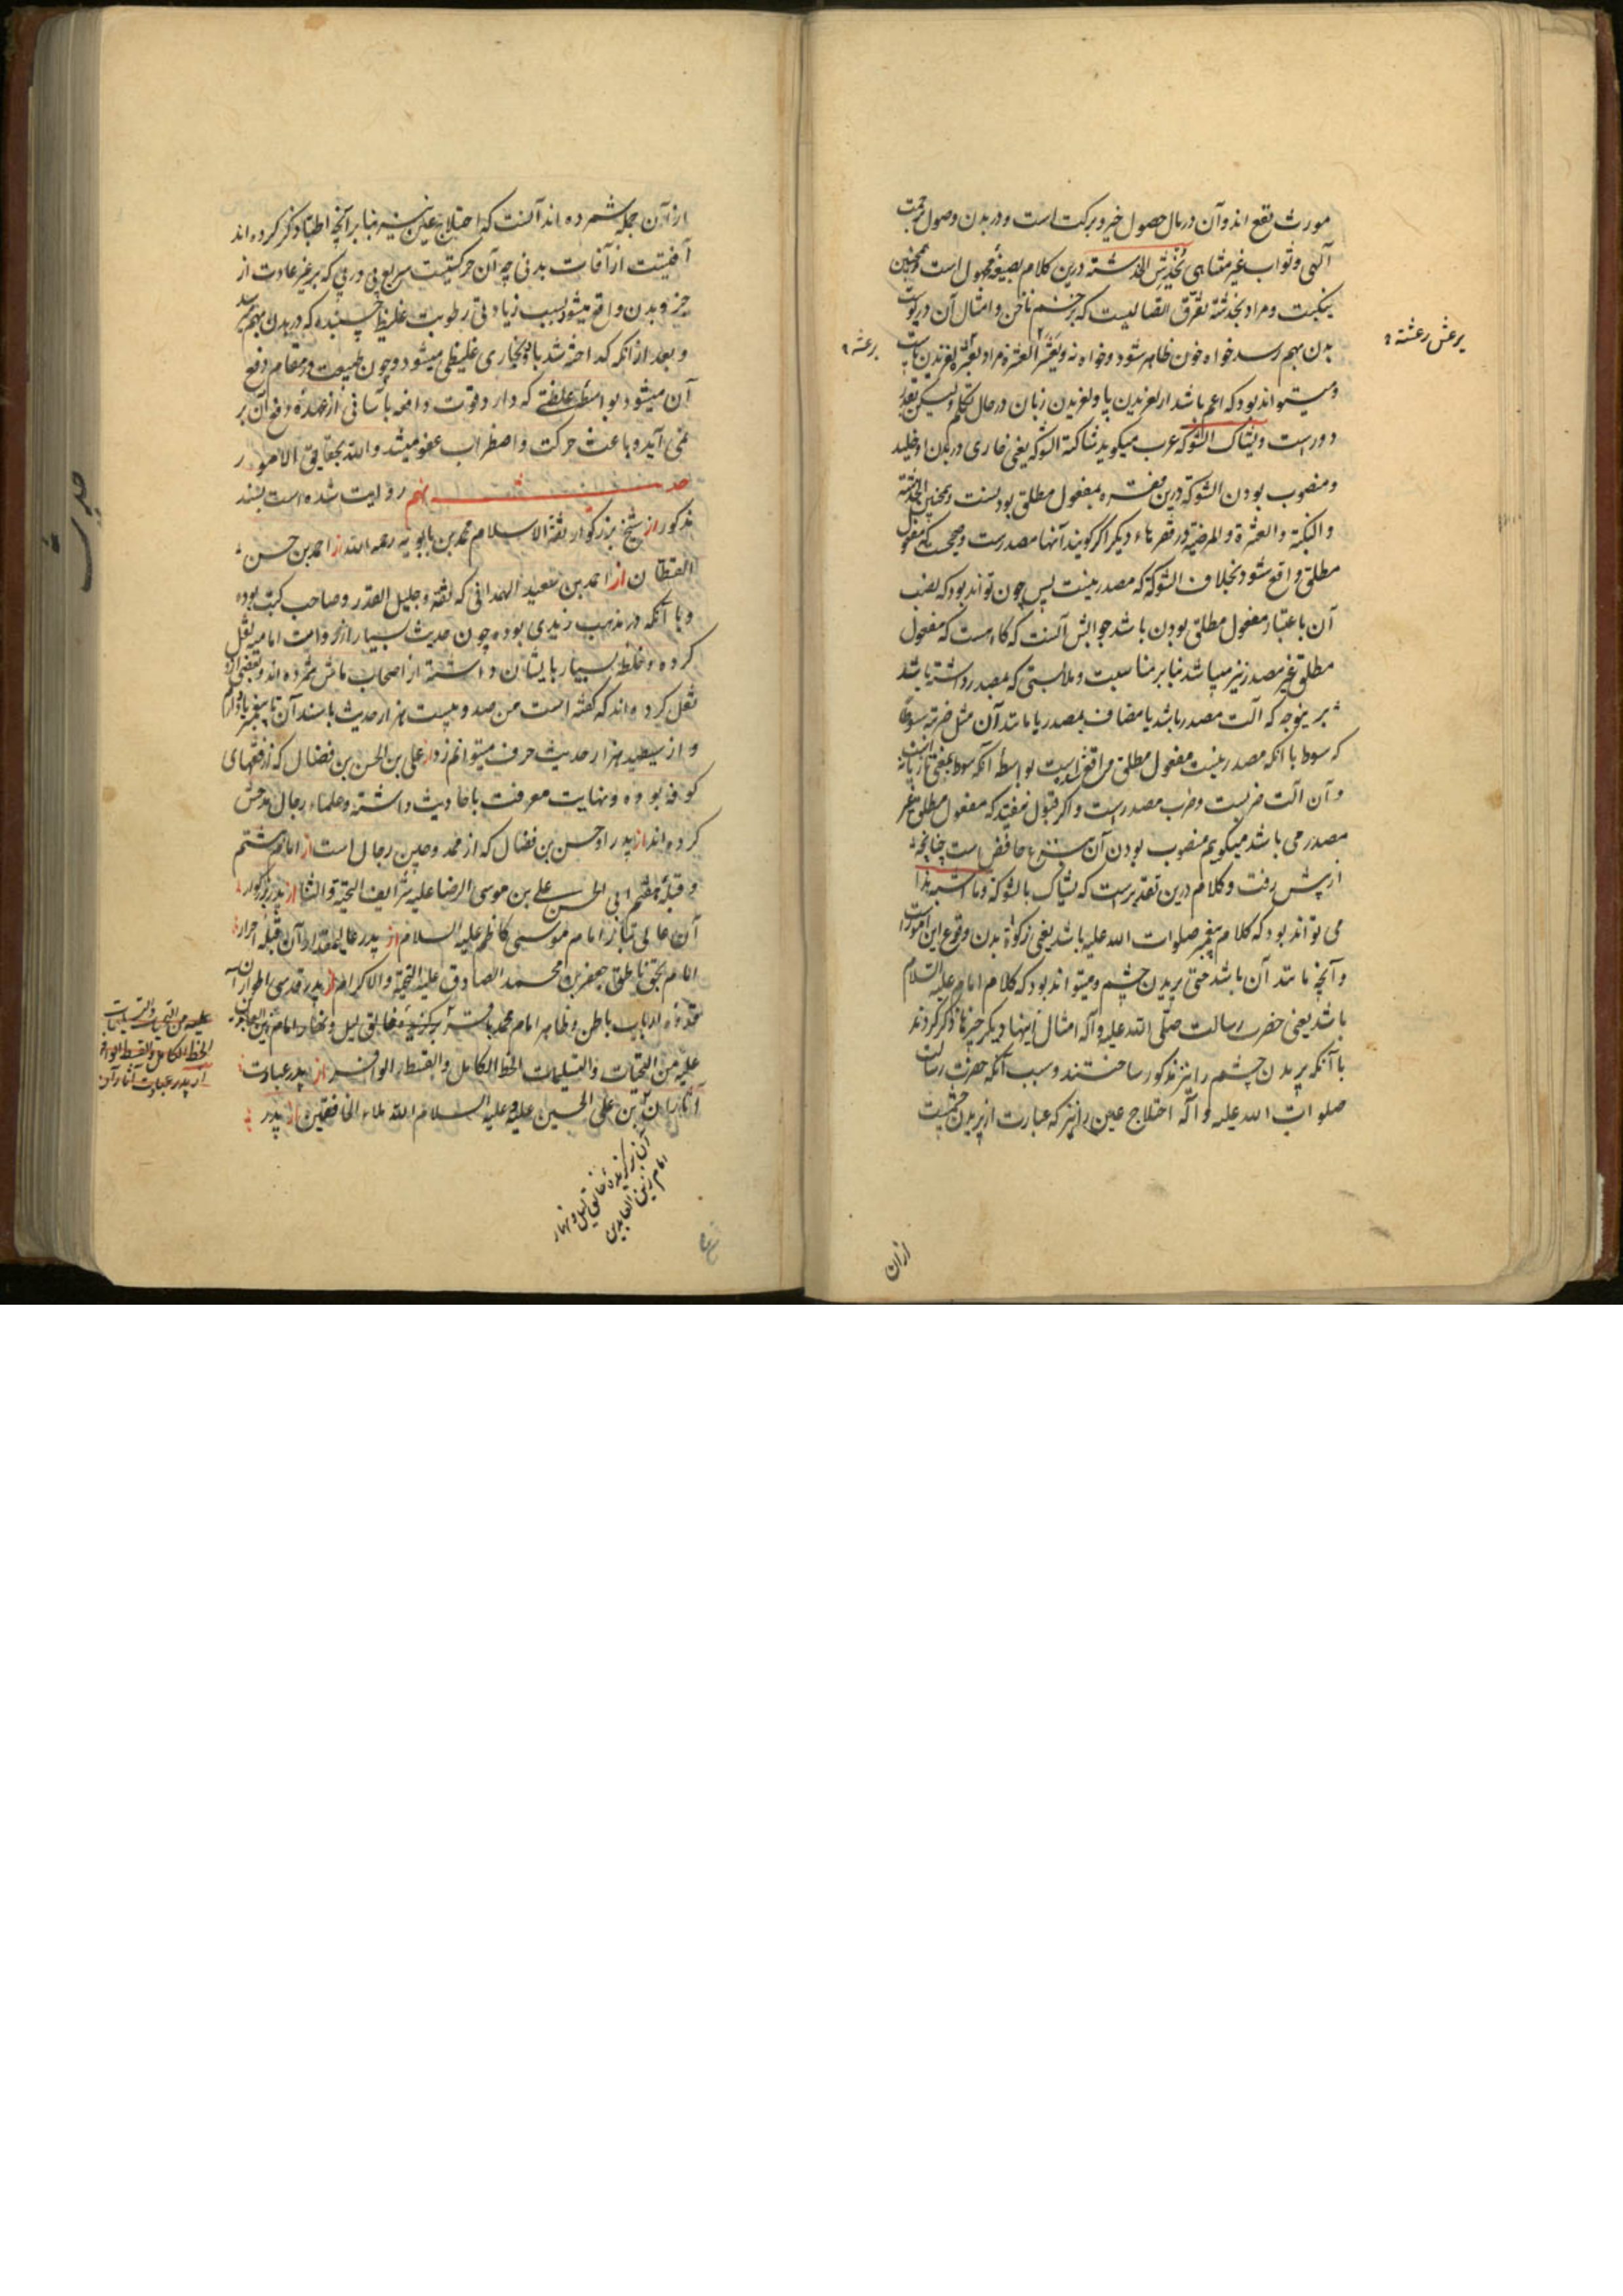 مورث نفع اند و آن در مال حصول خیر و برکت است و در بدن وصول رحمت
آلهی و ثواب غیر متناهی یُخْدَشِ الخدشته درین کلام بصیغهٔ مجهول است و همچنین
ینکبت و مراد بخدشته تفرّق اتصالیست که بزخم ناخن و امثال آن در پوست
بدن بهم رسد خواه خون ظاهر شود و خواه نه ویَعْثُر العثرة مراد بعثره لغزیدن پاست
یرعش رعشته
برعشه
و میتواند بود که اعم باشد از لغزیدن پا و لغزیدن زبان در حال تکلم و لیکن بعید
دورست ویشاک الشوکه عرب میگوید شاکته الشوکه یعنی خاری در بدن او خلید
و منصوب بودن الشوکة درین فقره بمفعول مطلق بودنست و همچنین الخدشته
و النکبة و العثرة و المرضة در فقرهاء دیگر اگر گویند آنها مصدرست و صحیحست که مفعول
مطلق واقع شود بخلاف الشوکة که مصدر نیست پس چون تواند بود که نصب
آن باعتبار مفعول مطلق بودن باشد جوابش آنست که گاه هست که مفعول
مطلق غیر مصدر نیز میباشد بنا بر مناسبت و ملابستی که بمصدر داشته باشد
برینوجه که آلت مصدر باشد یا مضاف بمصدر یا مانند آن مثل ضربته سوطا
که سوط با انکه مصدر نیست مفعول مطلق واقع شده است بواسطه آنکه سوط بمعنی تازیانه است
و آن آلت ضربست و ضرب مصدر است و اگر قبول نیفتد که مفعول مطلق غیر
مصدر می باشد میگویم منصوب بودن آن بنزع خافض است چنانچه
از پیش رفت و کلام درین تقدیر است که یشاک بالشوکة وما اشبه هذا
می تواند بود که کلام پیغمبر صلوات الله علیه باشد یعنی زکوة بدن وقوع این امور است
و آنچه مانند آن باشد حتی پریدن چشم و میتواند بود که کلام امام علیه السلام
باشد یعنی حضرت رسالت صلّی الله علیه و آله امثال اینها دیگر چیزها ذکر کردند
با آنکه پریدن چشم را نیز مذکور ساختند و سبب آنکه حضرت رسالت
صلوات الله علیه و آله اختلاج عین را نیز که عبارت از پریدن چشمست
ازان
از آن جمله شمرده اند آنست که اختلاج عین نیز بنا بر آنچه اطبا ذکر کرده اند
آفتیست از آفات بدنی چه آن حرکتیست سریع پی در پی که بر غیر عادت از
جزو بدن واقع میشود بسبب زیادتی رطوبت غلیظ چسبنده که در بدن بهم رسد
و بعد از انکه گداخته شد باد بخاری غلیظی میشود و چون طبیعت در مقام دفع
آن میشود بواسطه غلظتی که دارد قوت دافعه بآسانی از عهدهٔ دفع آن بر
نمی آید و باعث حرکت و اضطراب عضو میشد والله بحقایق الامور
حدیث نهم روایت شده است بسند
حدیث
مذکور از شیخ بزرگوار ثقة الاسلام محمد بن بابویه رحمه الله از احمد بن حسن
القطان از احمد بن سعید الهمدانی که ثقه و جلیل القدر و صاحب کتب بوده
و با آنکه در مذهب زیدی بوده چون حدیث بسیار از روات امامیه نقل
کرده و خلطه بسیار بایشان داشته از اصحاب ماش شمرده اند و بعضی ازو
نقل کرده اند که گفته است من صد و بیست هزار حدیث با سند آن
و از سیصد هزار حدیث حرف میتوانم زد از علی بن الحسن بن فضال که از فقهای
کوفه بوده و نهایت معرفت باحادیث داشته و علماء رجال مدحش
کرده اند از پدر او حسن بن فضال که از ممدوحین رجال است از امام هشتم
و قبلهٔ هفتم ابی الحسن علی بن موسی الرضا علیه شرایف التحیة والثنا از پدر بزرگوار
آن عالی تبار امام موسی کاظم علیه السلام از پدر عالیمقدار آن قبله احرار
امام بحق ناطق جعفر بن محمد الصادق علیه التحیة والاکرام از پدر قدسی اطوار آن
قدوه ارباب باطن و ظاهر امام محمد باقر برگزیده خالق لیل و نهار امام زین العابدین
علیه من التحیات والتسلیمات الحظ الکامل والقسط الوافر از پدر عبادت
آثار آن علی بن الحسین علیه و علیه السلام الله ملاء الخافقین از پدر
علیه من التحیات والتسلیمات
الحظ الکامل والقسط الوافر
از پدر عبادت آثار آن
آن برگزیدهٔ خالق لیل و نهار
امام زین العابدین